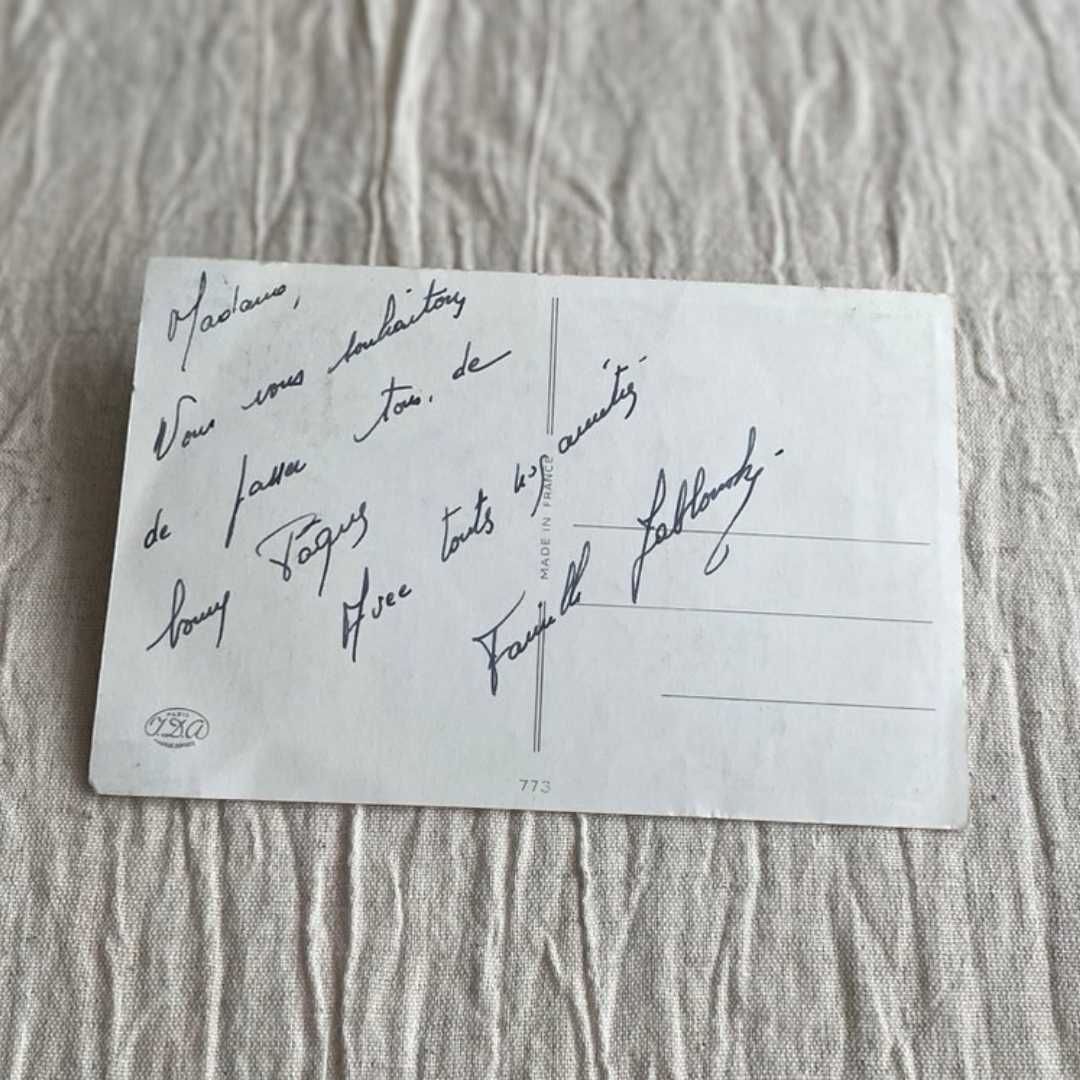 Madame,
Nous vous souhaitons
de passer tous, de
bonnes Pâques
Avec touts nos amitiés
Famille Jablonski
MADE IN FRANCE
PARIS
J.D.A
773